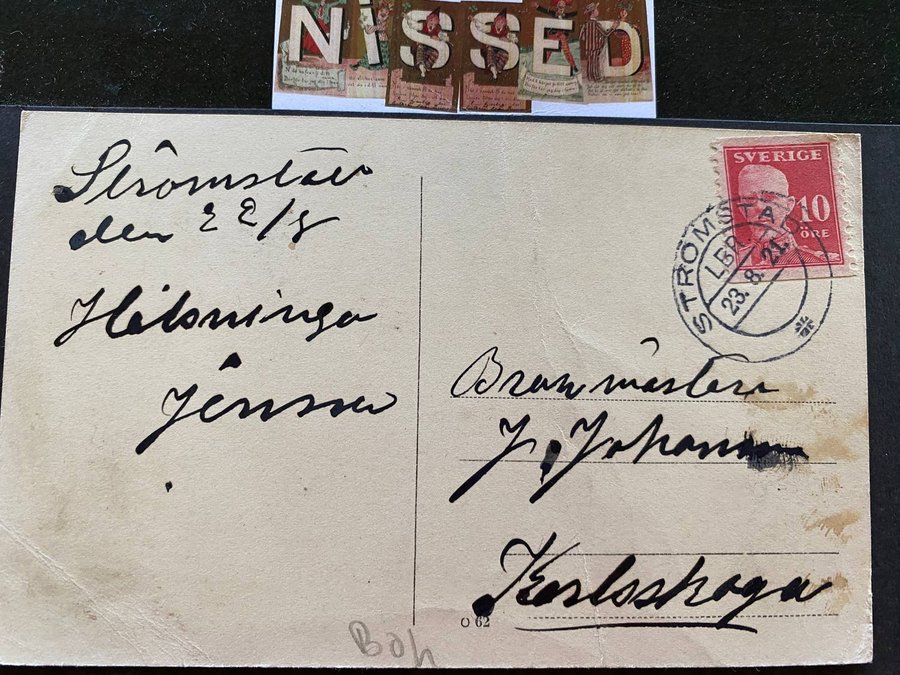 NISSED
Strömstad
den 22/8
Hälsninga
Jensen
SVERIGE
10
ÖRE
STRÖMSTAD
LBR
23.8.21.
J. Johanson
Karlskoga
O 62
Boh